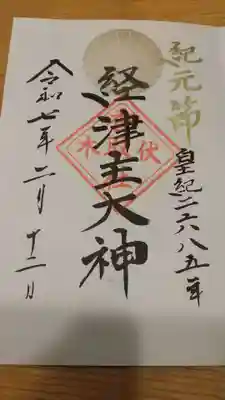 紀元節
皇紀二六八五年
経津主大神
令和七年二月十二日